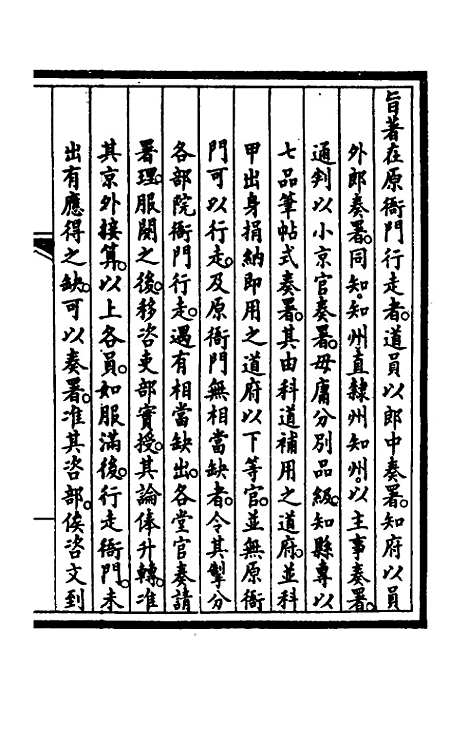 旨著在原衙門行走者。道員以郎中奏署。知府以員
外郎奏署。同知。知州直隸州知州。以主事奏署。
通判以小京官奏署。毋庸分別品級。知縣專以
七品筆帖式奏署。其由科道補用之道府。並科
甲出身捐納即用之道府以下等官。並無原衙
門可以行走。及原衙門無相當缺者。令其掣分
各部院衙門行走。遇有相當缺出。各堂官奏請
署理。服闋之後。移咨吏部實授。其論俸升轉。准
其京外接算。以上各員。如服滿後。行走衙門。未
出有應得之缺。可以奏署。准其咨部。俟咨文到